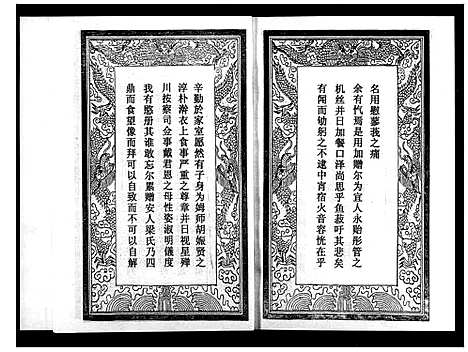 名用慰蓼我之痛
余有忾焉是用加赠尔为宜人永贻彤管之
机丝并日加餐口泽尚思乎鱼菽吁其悲矣
有闻而劬躬之不逮中宵宿火音容恍在乎
辛勤於家室愿然有子身为姆师胡娠贤之
淳朴澣衣上食事严重之尊章并日视星殚
川按察司佥事戴君恩之母性姿淑明仪度
我有愍册其谁敢忘尔累赠安人梁氏乃四
鼎而食望像而拜可以自致而不可以自解